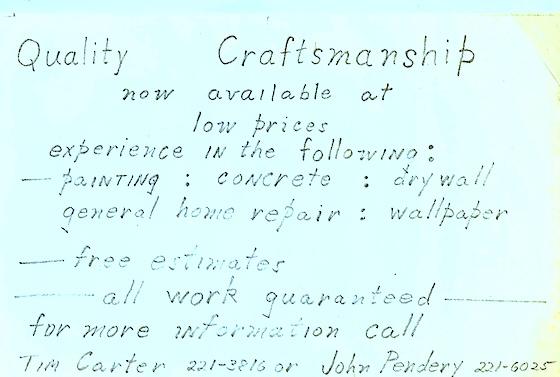 Quality Craftsmanship
now available at
low prices
experience in the following:
— painting : concrete : drywall
general home repair : wallpaper
— free estimates
— all work guaranteed —
for more information call
Tim Carter 221-3816 or John Pendery 221-6025